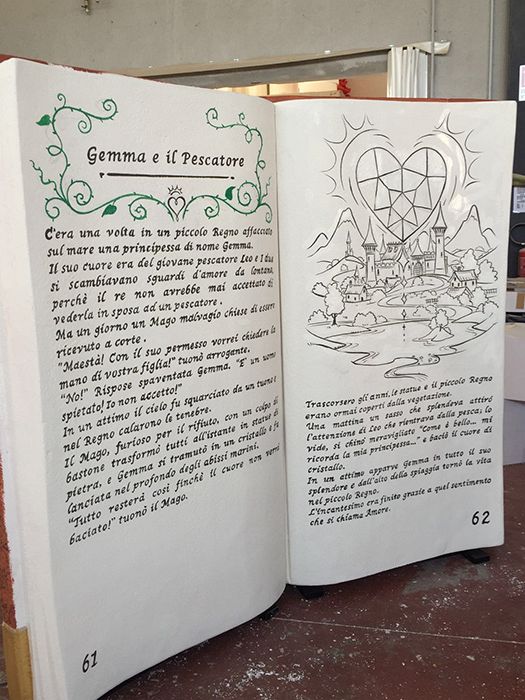 Gemma e il Pescatore
C'era una volta in un piccolo Regno affacciato
sul mare una principessa di nome Gemma.
Il suo cuore era del giovane pescatore Leo e I due
si scambiavano sguardi d'amore da lontano,
perchè il re non avrebbe mai accettato di
vederla in sposa ad un pescatore.
Ma un giorno un Mago malvagio chiese di essere
ricevuto a corte.
"Maestà! Con il suo permesso vorrei chiedere la
mano di vostra figlia!" tuonò arrogante.
"No!" Rispose spaventata Gemma. "E' un uomo
spietato! Io non accetto!"
In un attimo il cielo fu squarciato da un tuono e
nel Regno calarono le tenebre.
Il Mago, furioso per il rifiuto, con un colpo di
bastone trasformò tutti all'istante in statue di
pietra, e Gemma si tramutò in un cristallo e fu
lanciata nel profondo degli abissi marini.
"Tutto resterà così finchè il cuore non verrà
baciato!" tuonò il Mago.
61
Trascorsero gli anni, le statue e il piccolo Regno
erano ormai coperti dalla vegetazione.
Una mattina un sasso che splendeva attirò
l'attenzione di Leo che rientrava dalla pesca; lo
vide, si chinò meravigliato "Come è bello... mi
ricorda la mia principessa..." e baciò il cuore di
cristallo.
In un attimo apparve Gemma in tutto il suo
splendore e dall'alto della spiaggia tornò la vita
nel piccolo Regno.
L'incantesimo era finito grazie a quel sentimento
che si chiama Amore.
62